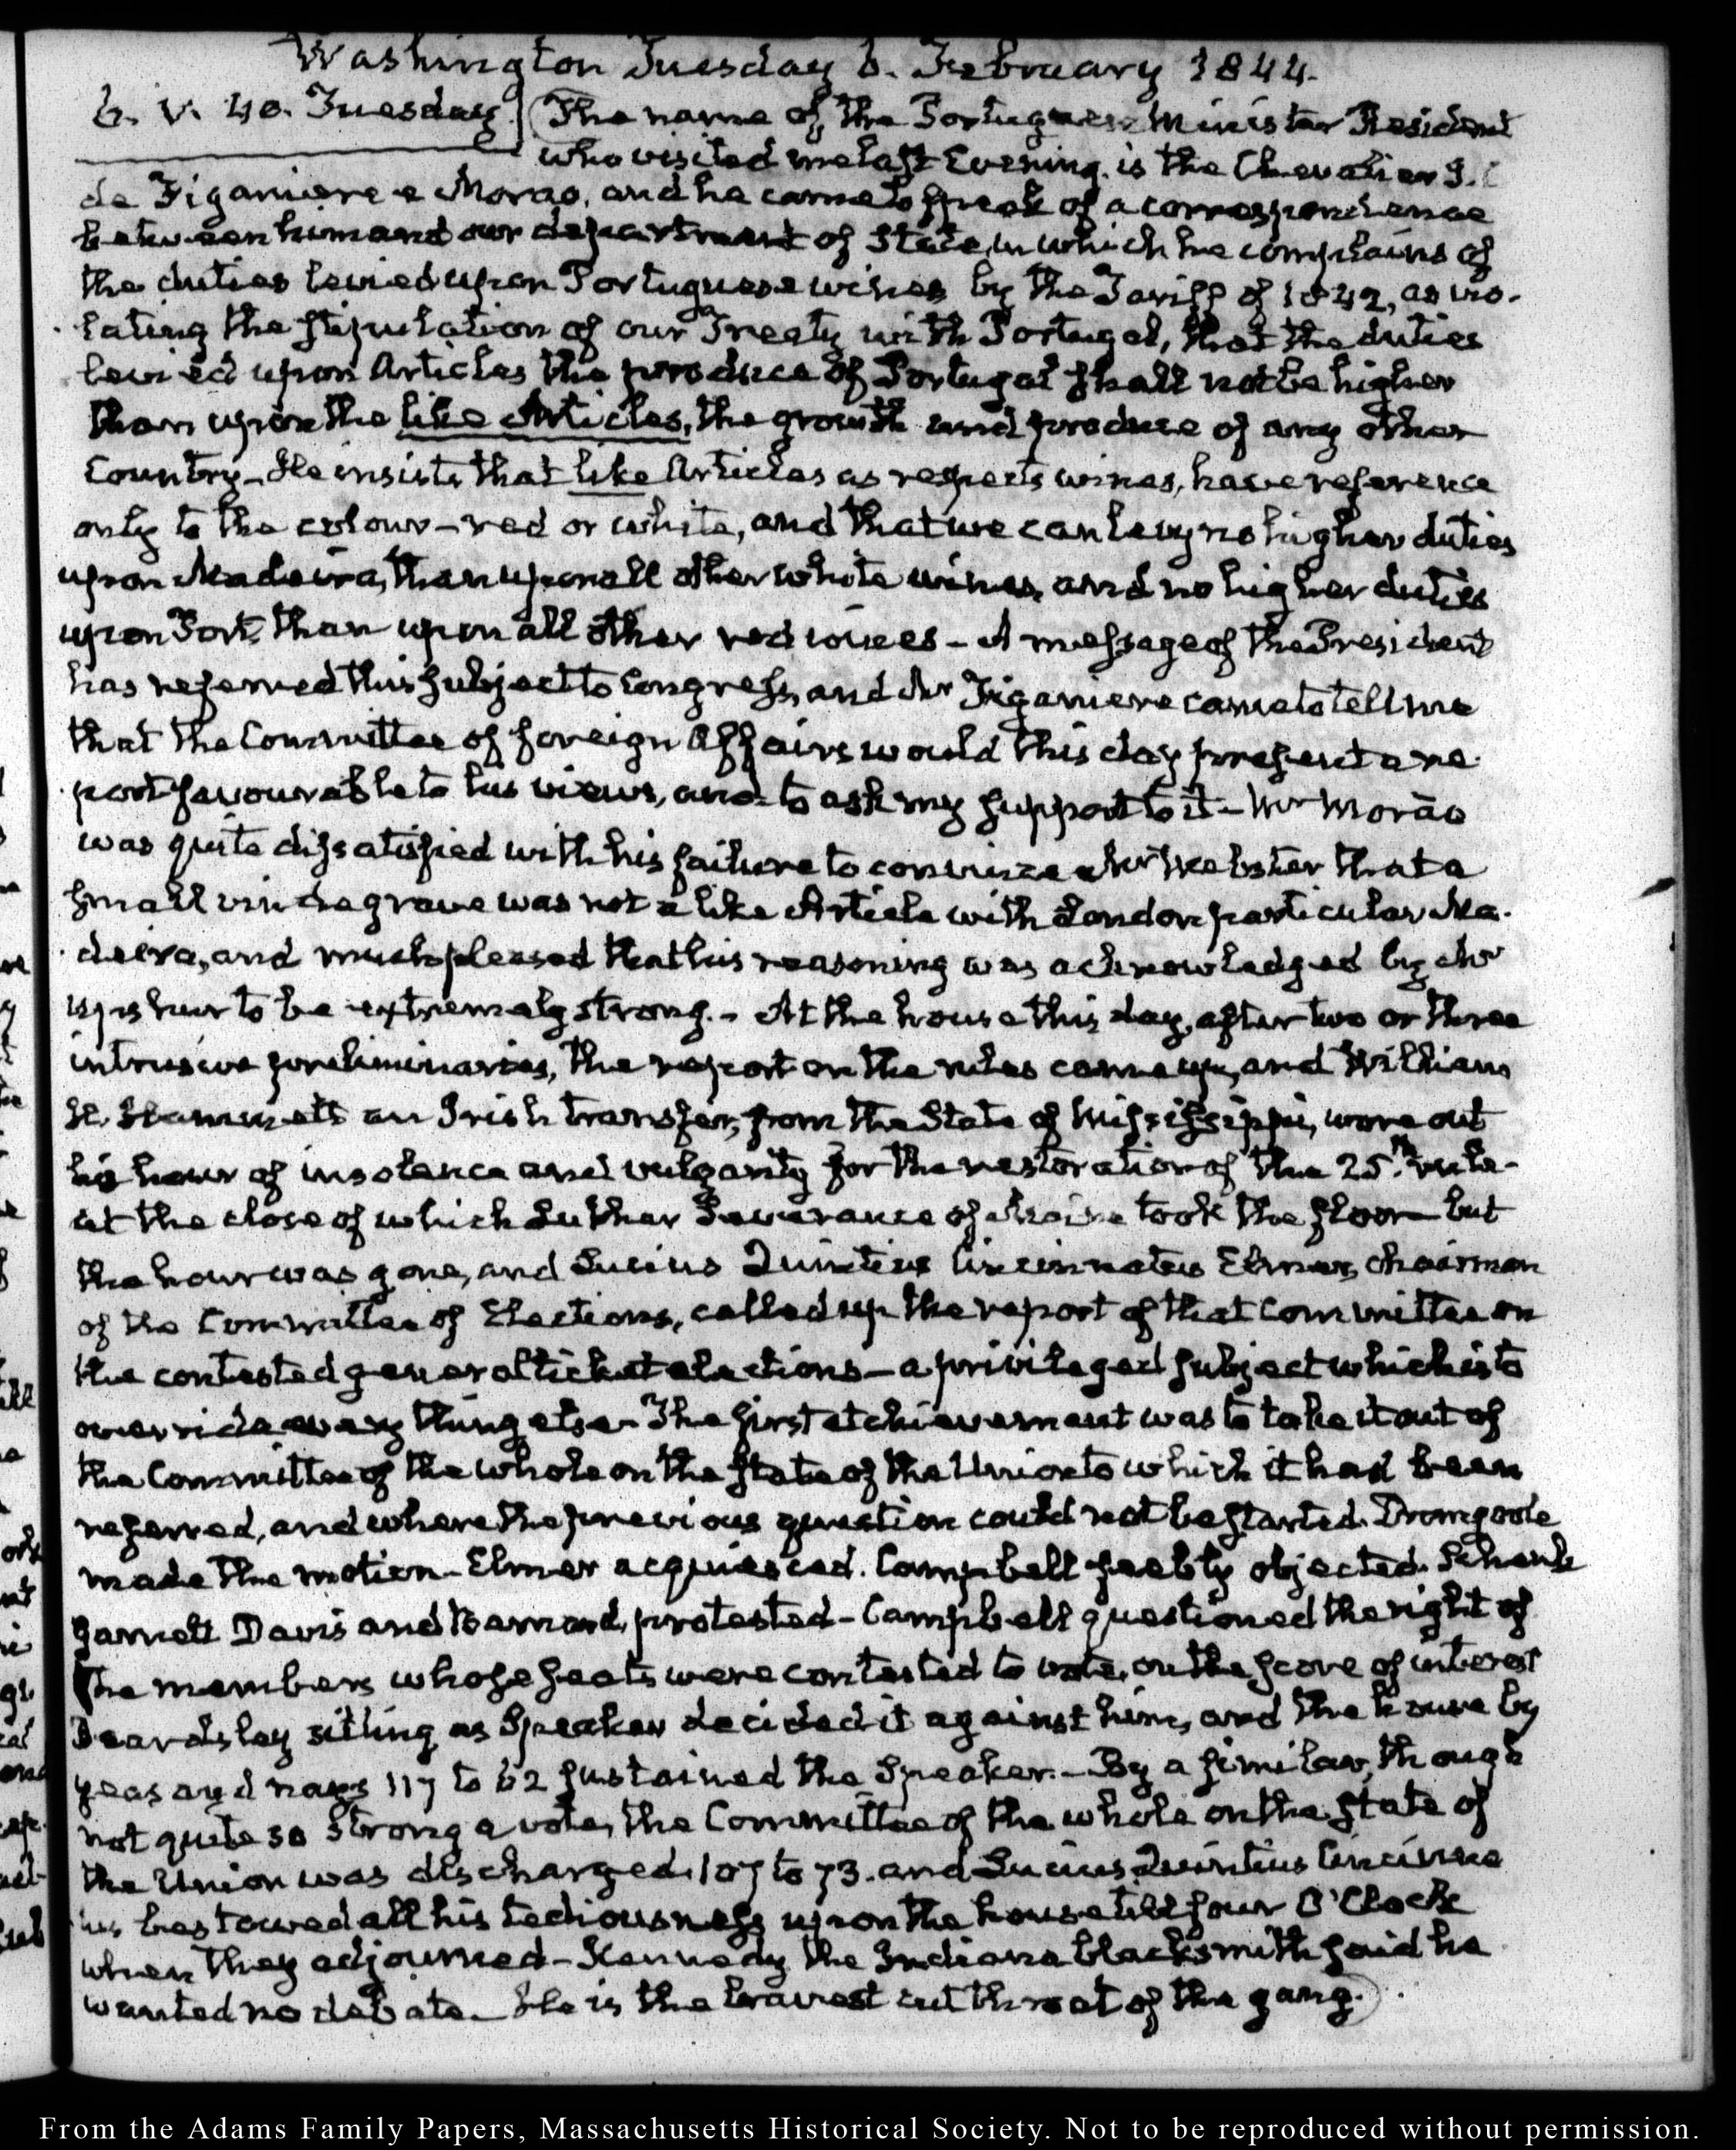 Washington Tuesday 6. February 1844.
6. V. 40. Tuesday. The name of the Portuguese Minister Resident
who visited me last Evening. is the Chevalier J. C
de Figaniere e Morao, and he came to speak of a correspondence
between him and our department of State, in which he complains of
the duties levied upon Portuguese wines by the Tariff of 1842, as vio-
lating the stipulation of our Treaty with Portugal, that the duties
levied upon Articles the produce of Portugal shall not be higher
than upon the like Articles, the growth and produce of any other
Country - He insists that like Articles as respects wines, have reference
only to the colour - red or white, and that we can levy no higher duties
upon Madeira, than upon all other white wines, and no higher duties
upon Port, than upon all other red wines - A message of the President
has referred this subject to Congress, and Mr Figaniere came to tell me
that the Committee of foreign Affairs would this day present a re-
port favourable to his views, and to ask my support to it - Mr Morão
was quite dissatisfied with his failure to convince Mr Webster that a
small vin de grave was not a like Article with London particular Ma-
deira, and much pleased that his reasoning was acknowledged by Mr
Upshur to be extremely strong. - At the house this day, after two or three
intrusive preliminaries, the report on the rules came up, and William
H. Hammett an Irish transfer, from the State of Mississippi, wore out
his hour of insolence and vulgarity for the restoration of the 25th rule -
at the close of which Luther Severance of Maine took the floor - but
the hour was gone, and Lucius Quintius Cincinnatus Elmer, chairman
of the Committee of Elections, called up the report of that Committee on
the contested general ticket elections - a privileged subject which is to
override every thing else - The first atchievement was to take it out of
the Committee of the whole on the state of the Union to which it had been
referred, and where the previous question could not be started. Dromgoole
made the motion - Elmer acquiesced. Campbell feebly objected. Schenck
Garrett Davis and Barnard, protested - Campbell questioned the right of
the members whose seats were contested to vote, on the score of interest
Beardsley sitting as Speaker decided it against him, and the house by
yeas and nays 117 to 62 sustained the Speaker. - By a similar, though
not quite so strong a vote, the Committee of the whole on the state of
the Union was discharged. 107 to 73. and Lucius Quintius Cincinna
tus bestowed all his tediousness upon the house till four O'Clock
when they adjourned - Kennedy the Indiana blacksmith said he
wanted no debate - He is the bravest cut throat of the gang.
From the Adams Family Papers, Massachusetts Historical Society. Not to be reproduced without permission.